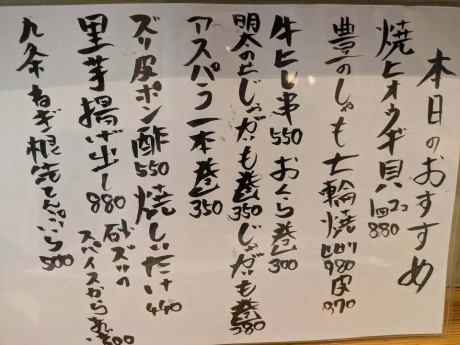 本日のおすすめ
焼ヒオウギ貝 880
豊一のしゃも七輪焼 980 皮 870
牛ヒレ串550 おくら巻300
明太のせじゃがいも巻350 じゃがいも巻380
アスパラ一本巻350
ズリ皮ポン酢550 焼しいたけ440
里芋揚げ出し880 砂ズリのスパイスからあげ500
九条ねぎ根元てんぷら500